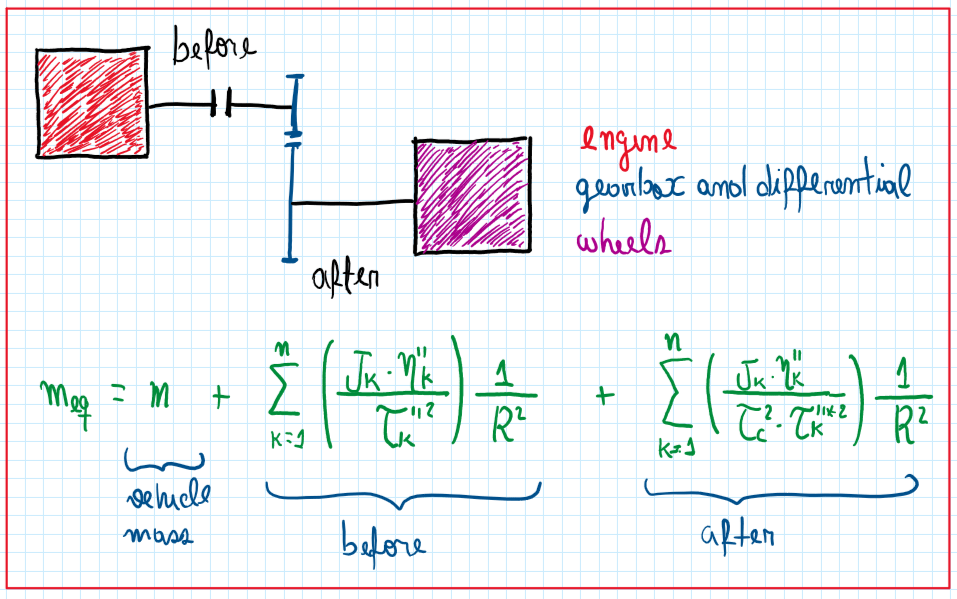 before
engine
gearbox and differential
wheels
after
m_eq = m + \sum_{k=1}^{n} \left( \frac{J_k \cdot \eta_k''}{\tau_k''^2} \right) \frac{1}{R^2} + \sum_{k=1}^{n} \left( \frac{J_k \cdot \eta_k''}{\tau_c^2 \cdot \tau_k''^{*2}} \right) \frac{1}{R^2}
vehicle
mass
before
after